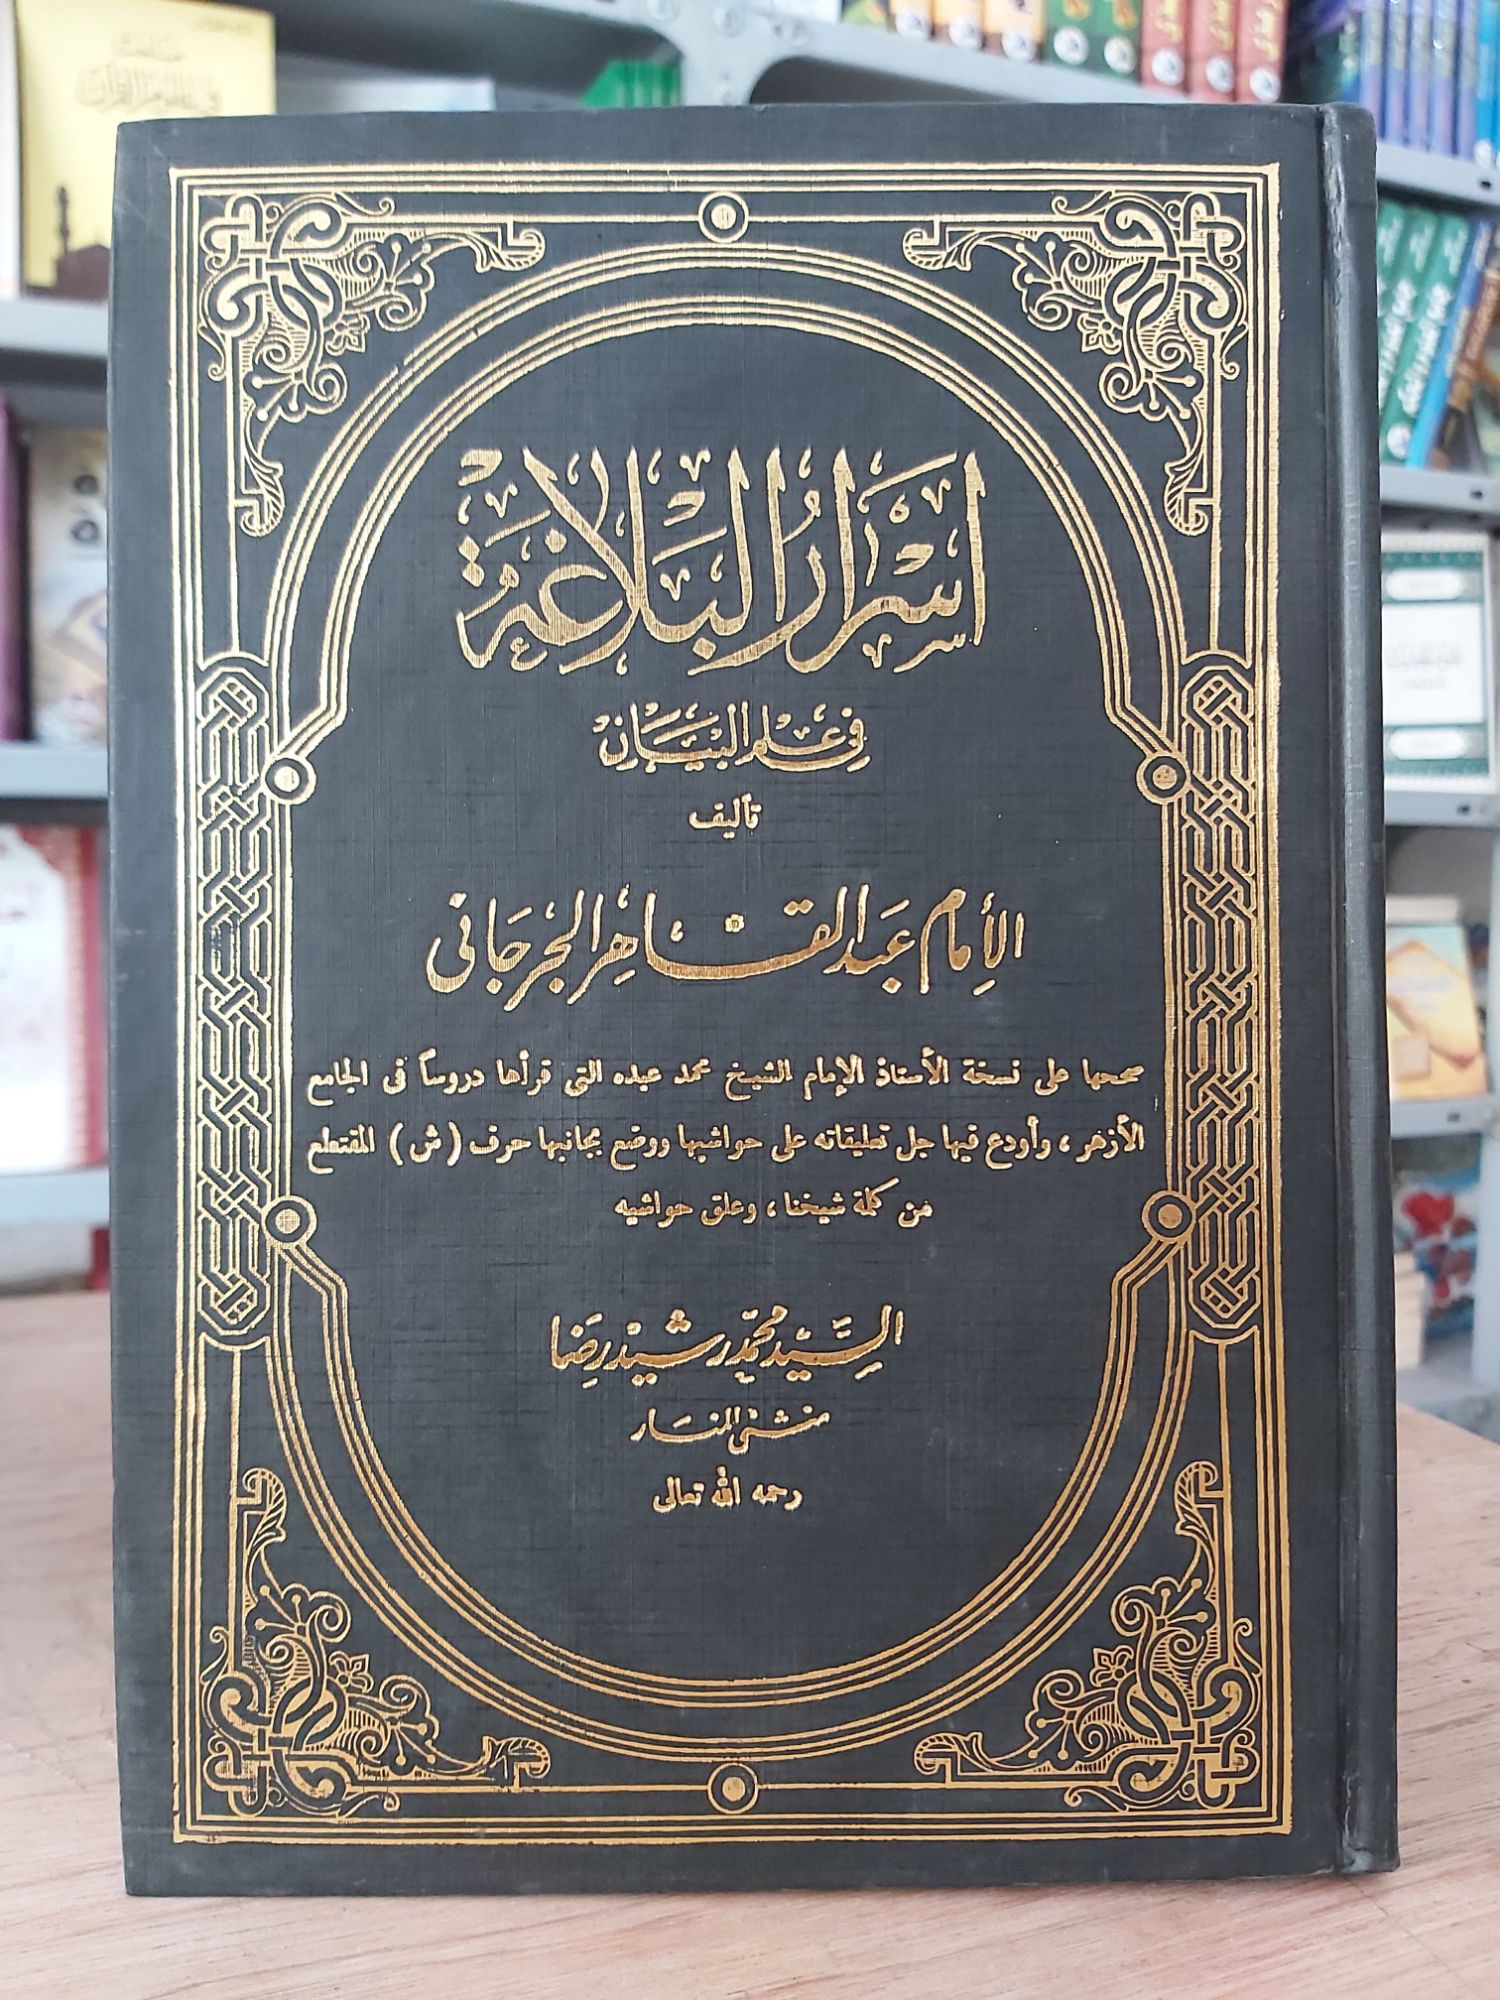 أَسْرَارُ البَلَاغَةِ
فِي عِلمِ البَيَانِ
تأليف
الإِمَام عَبد القَاهِر الجُرجَاني
صححها على نسخة الأستاذ الإمام الشيخ محمد عبده التي قرأها دروساً في الجامع
الأزهر، وأودع فيها جل تعليقاته على حواشيها ووضع بجانبها حرف (ش) المقتطع
من كلمة شيخنا، وعلق حواشيه
السَّيِّد محمَّد رشيد رِضَا
منشئ المنار
رحمه الله تعالى
في علوم القرآن